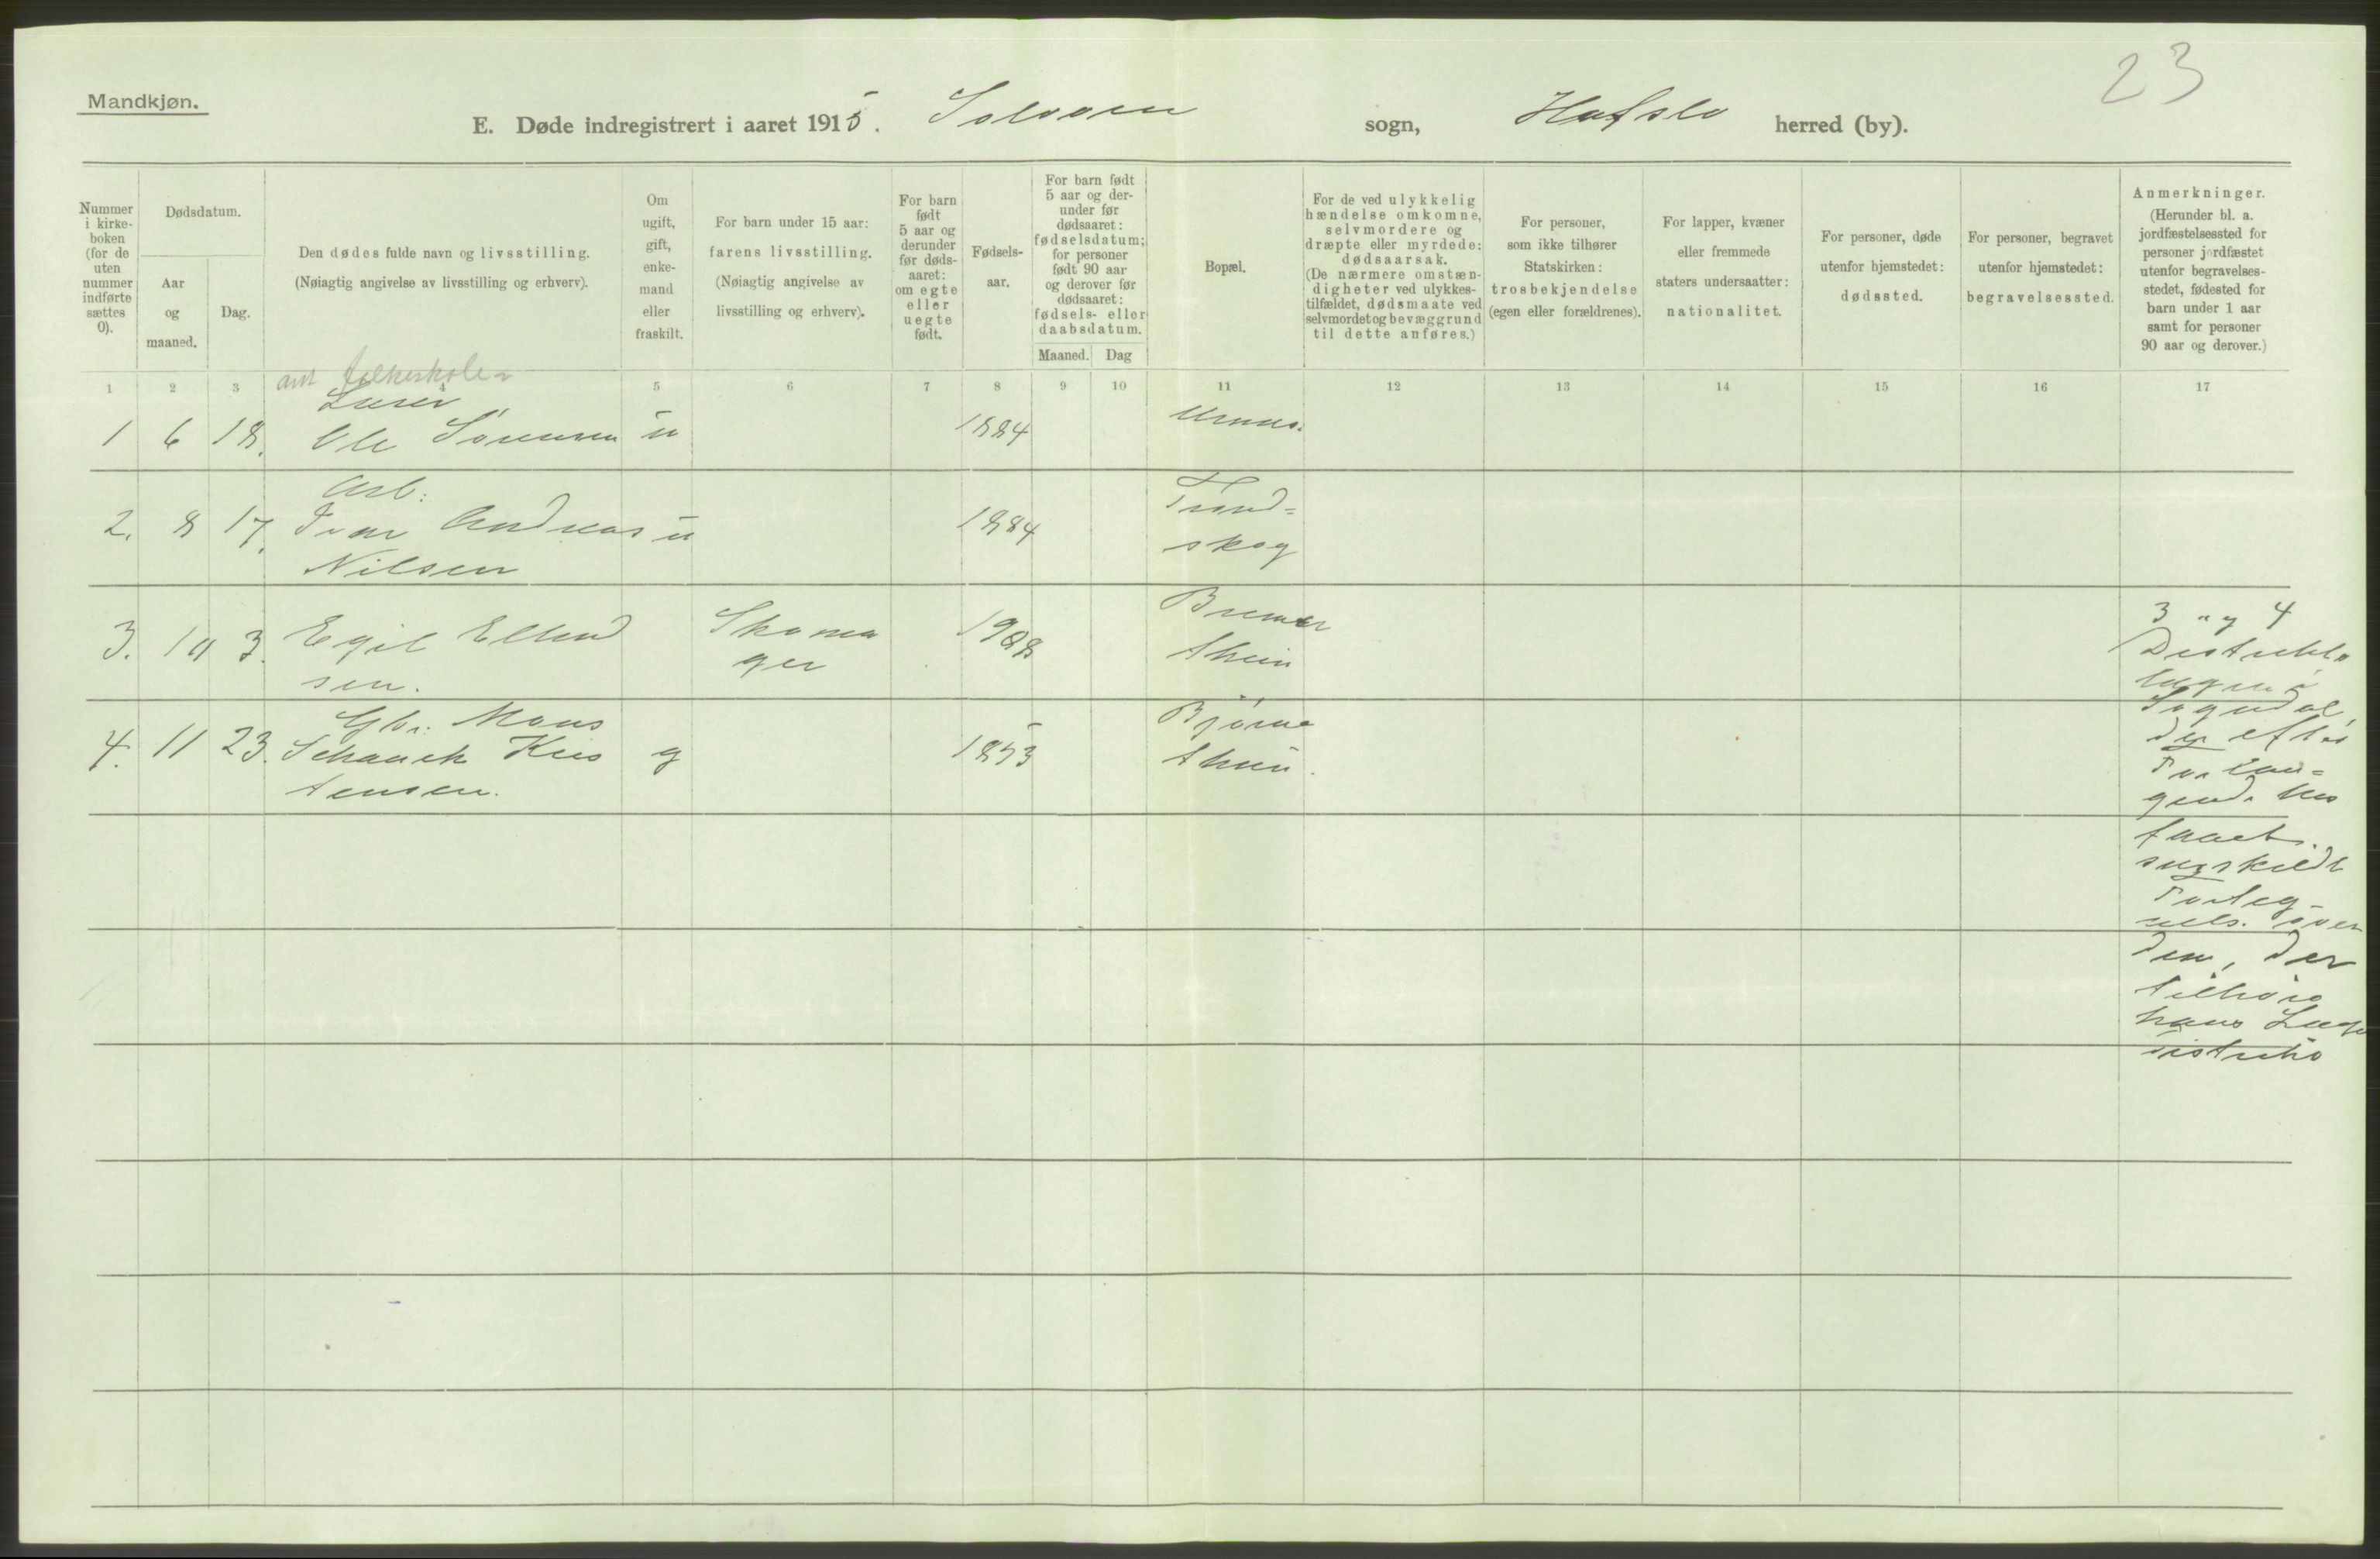 23
Mandkjøn.
E. Døde indregistrert i aaret 1915. Solvorn sogn, Hafslo herred (by).
Nummer i kirke-boken (for de uten nummer indførte sættes 0).
Dødsdatum.
Aar og maaned.
Dag.
Den dødes fulde navn og livsstilling.
(Nøiagtig angivelse av livsstilling og erhverv).
Om ugift, gift, enke-mand eller fraskilt.
For barn under 15 aar: farens livsstilling.
(Nøiagtig angivelse av livsstilling og erhverv).
For barn født 5 aar og derunder før døds-aaret: om egte eller uegte født.
Fødsels-aar.
For barn født 5 aar og der-under før dødsaaret: fødselsdatum; for personer født 90 aar og derover før dødsaaret: fødsels- eller daabsdatum.
Maaned. Dag
Bopæl.
For de ved ulykkelig hændelse omkomne, selvmordere og dræpte eller myrdede: dødsaarsak.
(De nærmere omstæn-digheter ved ulykkes-tilfældet, dødsmaate ved selvmordet og bevæggrund til dette anføres.)
For personer, som ikke tilhører Statskirken: trosbekjendelse (egen eller forældrenes).
For lapper, kvæner eller fremmede staters undersaatter: nationalitet.
For personer, døde utenfor hjemstedet: dødssted.
For personer, begravet utenfor hjemstedet: begravelsessted.
Anmerkninger.
(Herunder bl. a. jordfæstelsessted for personer jordfæstet utenfor begravelses-stedet, fødested for barn under 1 aar samt for personer 90 aar og derover.)
1 2 3 4 5 6 7 8 9 10 11 12 13 14 15 16 17
folkeskole
Lærer
1 6 18. Ole Sørensen u 1884 Urnes.
Arb.
2. 8 17. Ivar Andreas u 1884
Nilsen
skog
3. 10 3. Egil Ellend
sen.
Skoma
ger
1908
Bremer
thun
4. 11 23. Gbr. Mons
Schanch Kris
tensen.
g 1853
Bjørne
thun.
3 og 4
Distrikts
lægen i
Sogndal,
der efter
Forlan=
gende
faaet
særskildt
Forteg-
nels. over
dem, der
tilhøre
hans Læge
distrikt